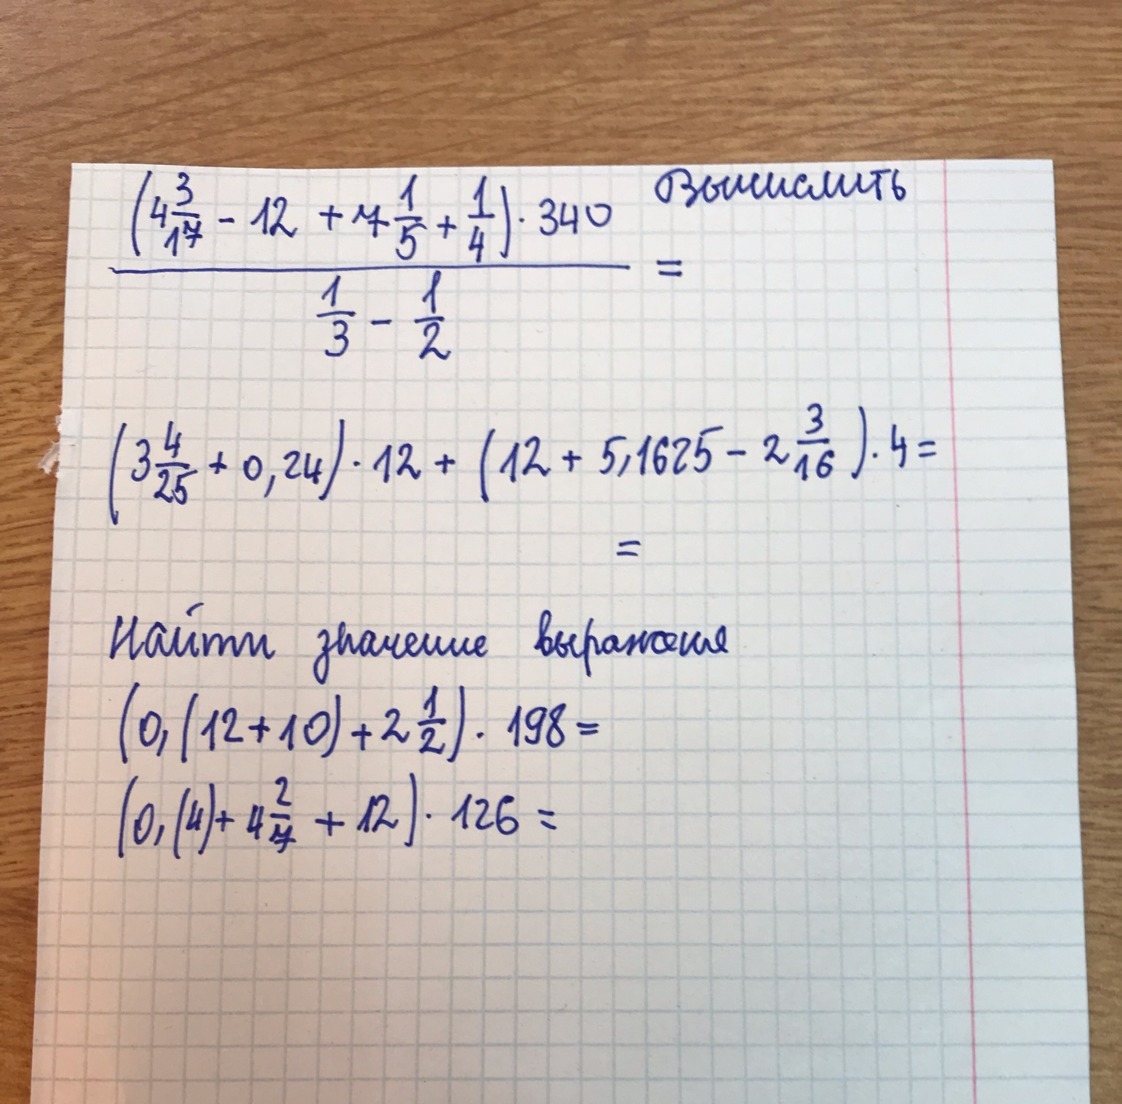 (4 3/17 - 12 + 7 1/5 + 1/4) · 340 Вычислить
=
1/3 - 1/2
(3 4/25 + 0,24) · 12 + (12 + 5,1625 - 2 3/16) · 4 =
=
Найти значение выражения
(0,(12+10) + 2 1/2) · 198 =
(0,(4) + 4 2/7 + 12) · 126 =